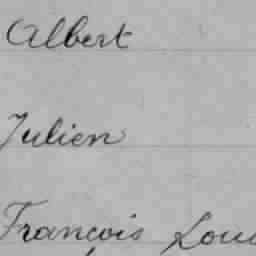 Albert
Julien
François